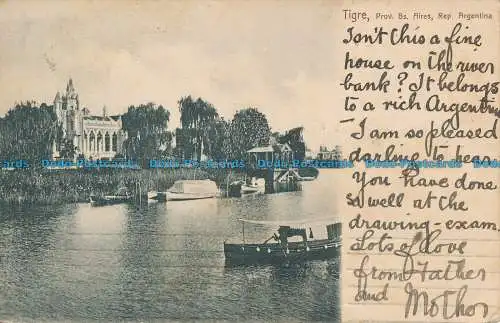 Tigre, Prov. Bs. Aires, Rep. Argentina
Isn't this a fine
house on the river
bank? It belongs
to a rich Argentine
I am so pleased
darling to hear
You have done
so well at the
drawing-exam.
Lots of love
from Father
and Mother